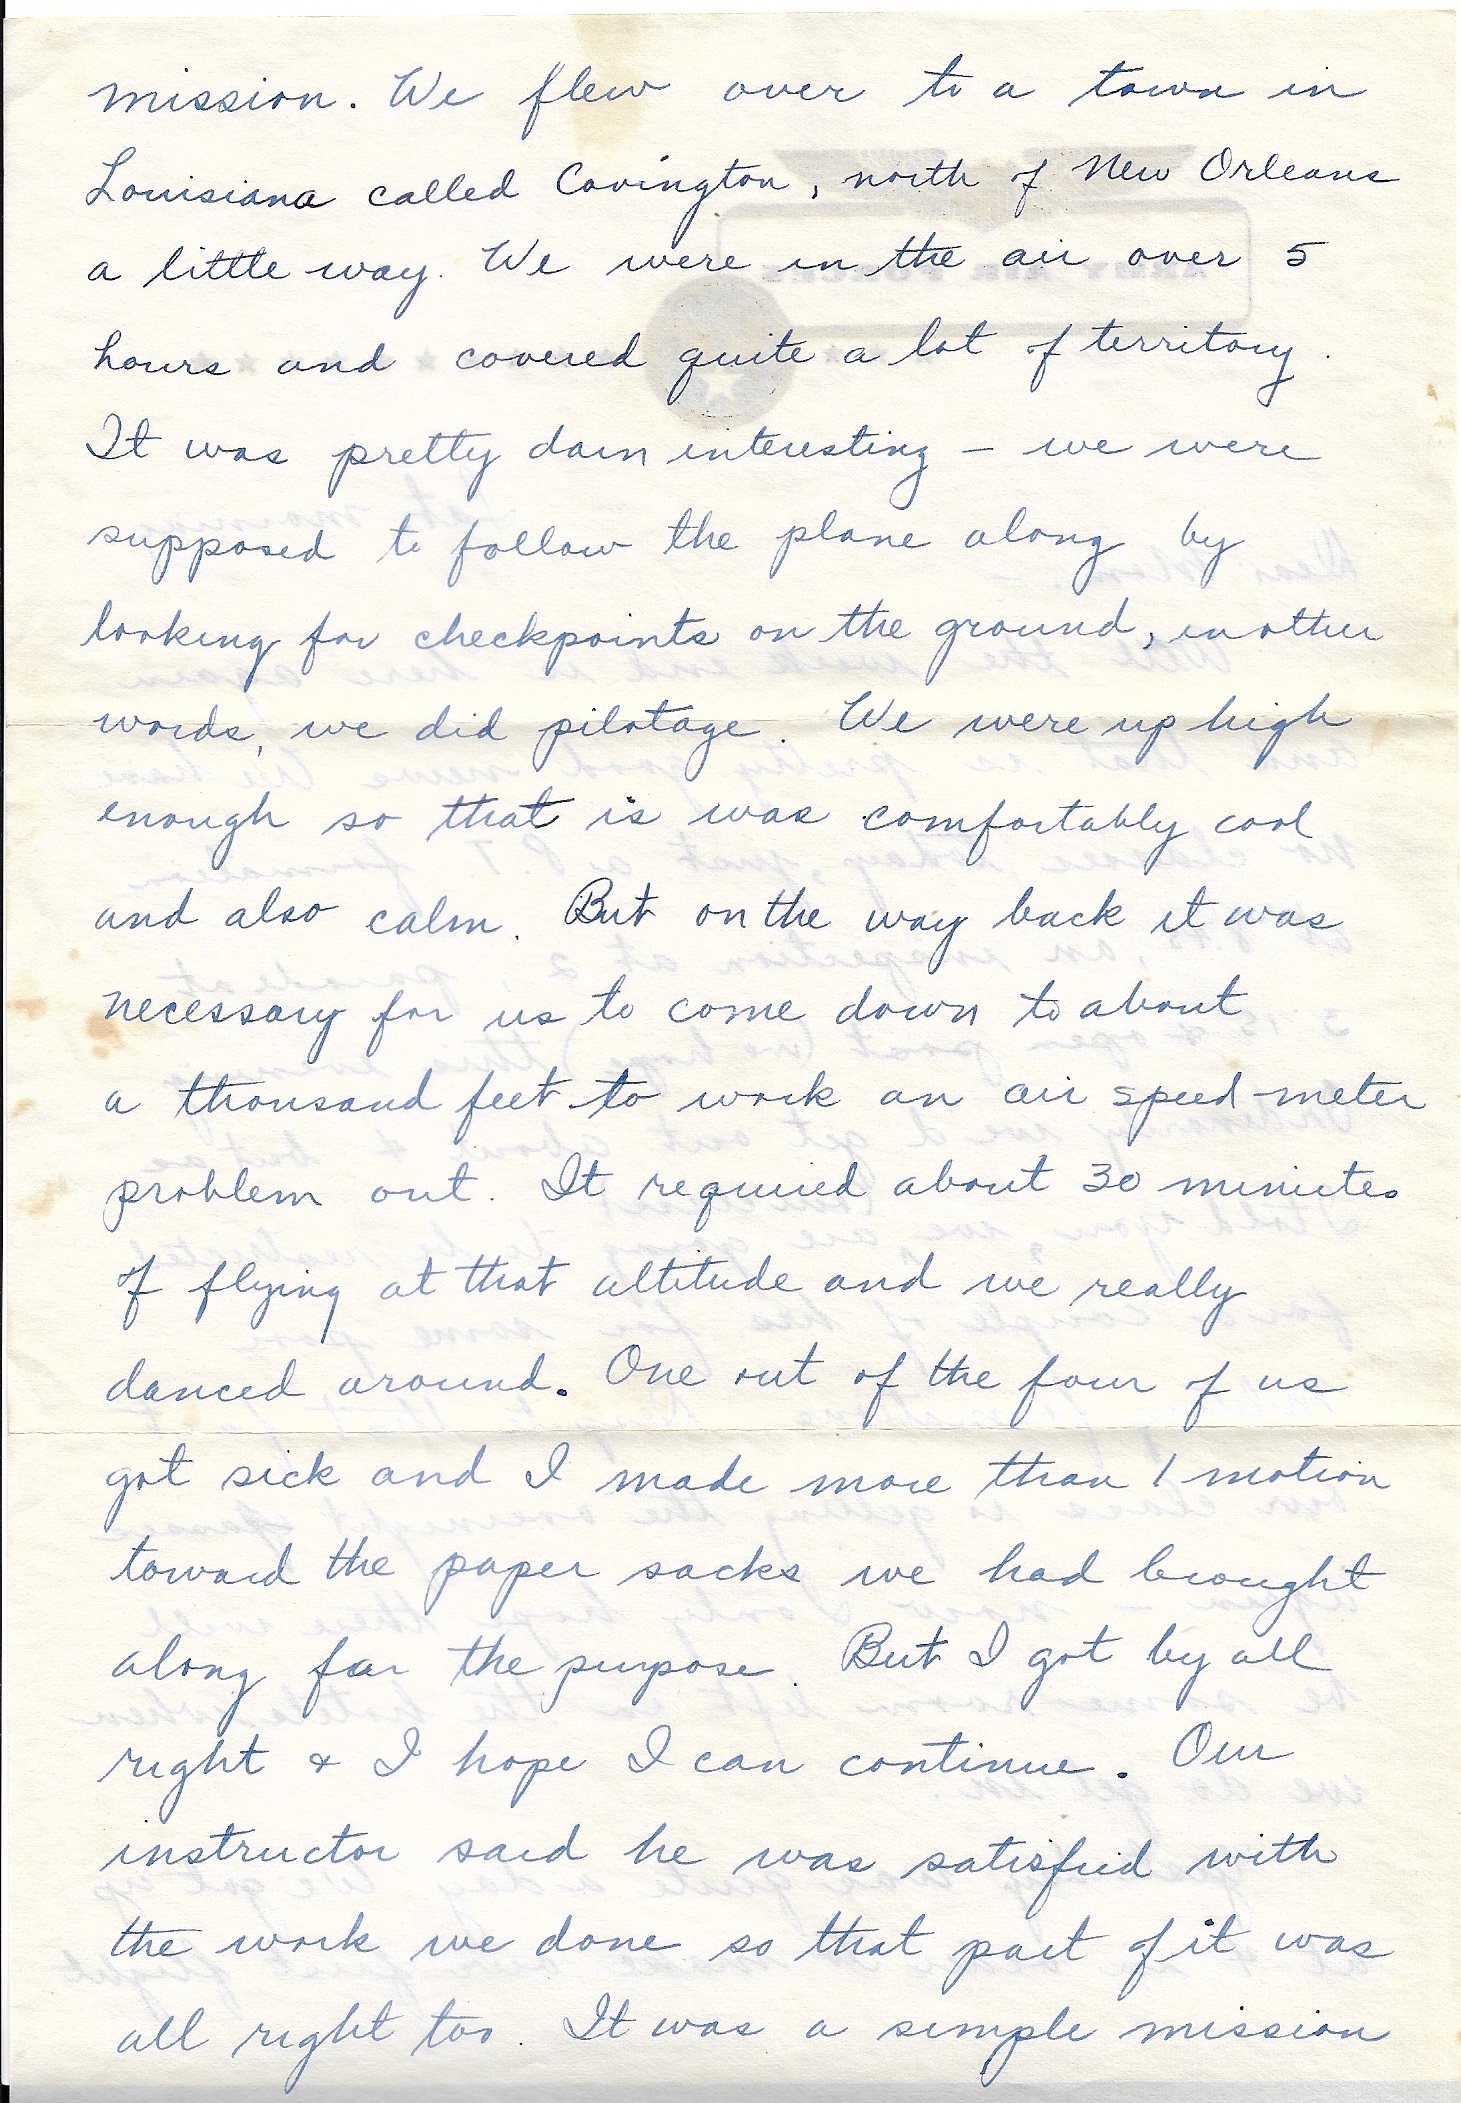 mission. We flew over to a town in
Louisiana called Covington, north of New Orleans
a little way. We were in the air over 5
hours and covered quite a lot of territory.
It was pretty darn interesting – we were
supposed to follow the plane along by
looking for checkpoints on the ground, in other
words, we did pilotage. We were up high
enough so that is was comfortably cool
and also calm. But on the way back it was
necessary for us to come down to about
a thousand feet to work an air speed meter
problem out. It required about 30 minutes
of flying at that altitude and we really
danced around. One out of the four of us
got sick and I made more than 1 motion
toward the paper sacks we had brought
along for the purpose. But I got by all
right & I hope I can continue. Our
instructor said he was satisfied with
the work we done so that part of it was
all right too. It was a simple mission